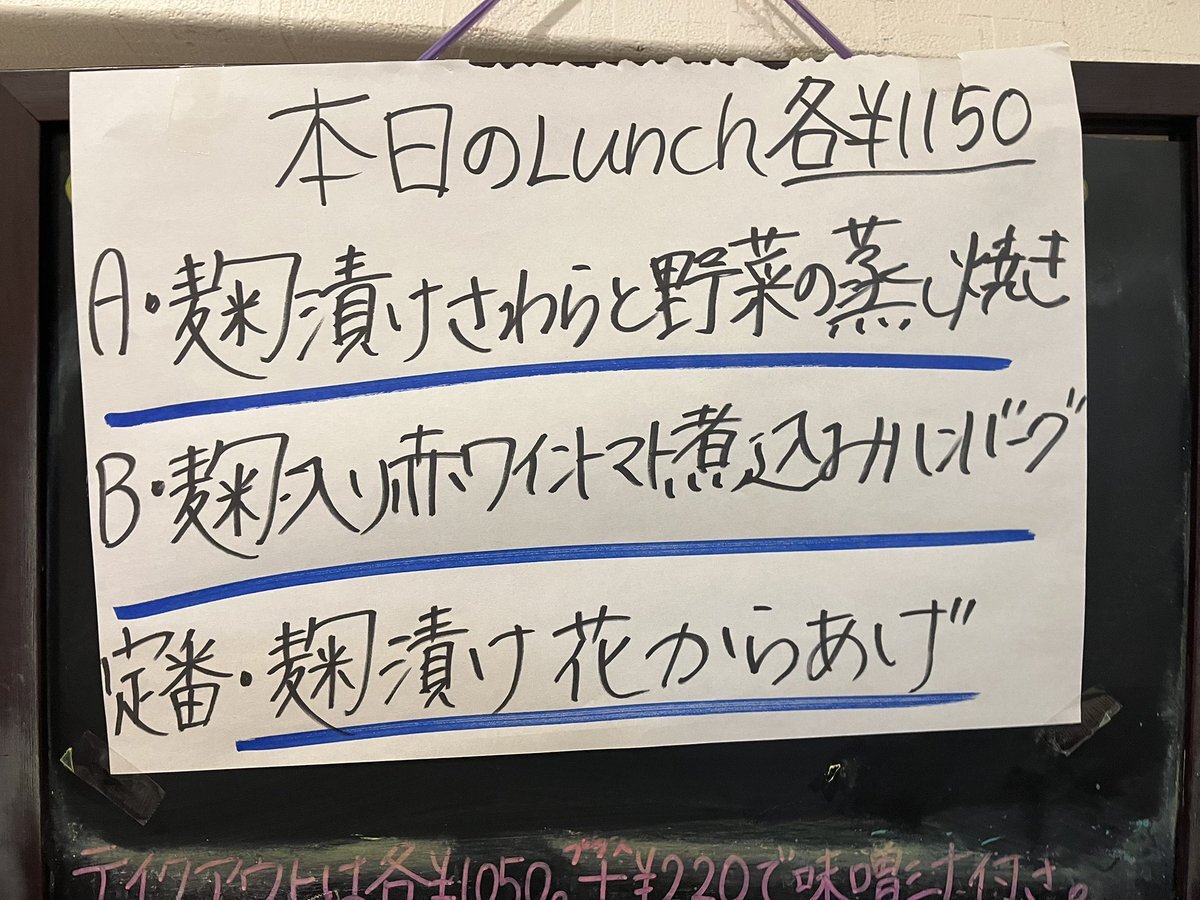 本日のLunch各¥1150
A・麹漬けさわらと野菜の蒸し焼き
B・麹入り赤ワイントマト煮込みハンバーグ
定番・麹漬け花からあげ
プラス
テイクアウトは各¥1050。+¥220で味噌汁付き。